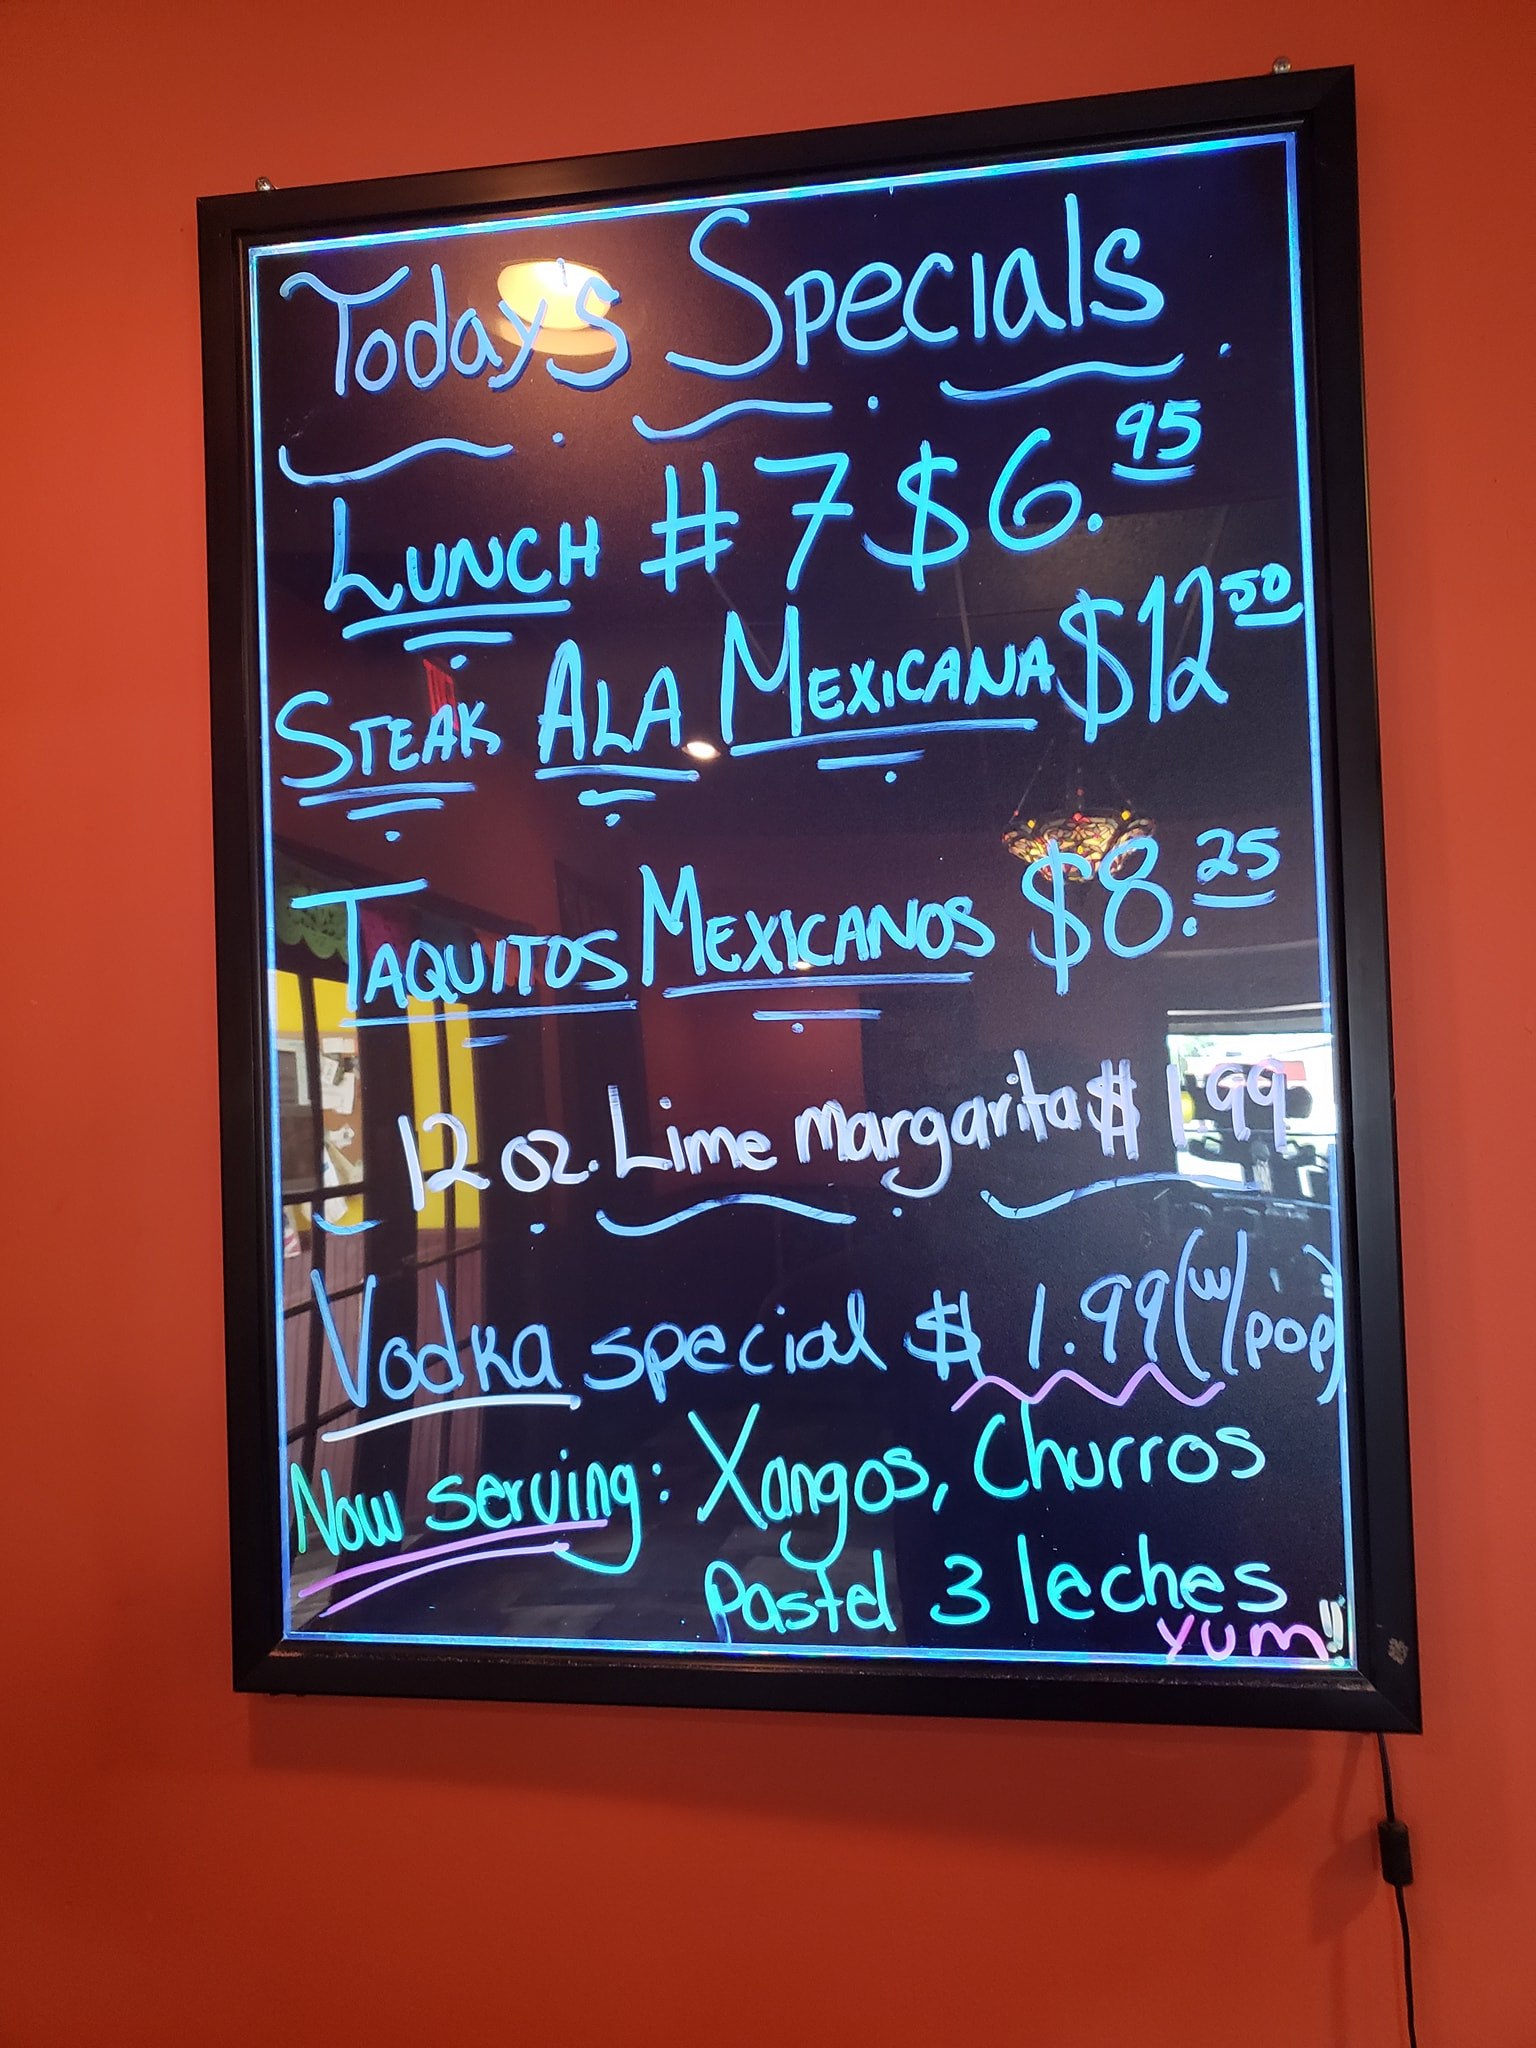 Today's Specials
LUNCH # 7 $6.95
STEAK ALA MEXICANA $12 50
TAQUITOS MEXICANOS $8.25
12 oz. Lime margarita $ 1.99
Vodka special $ 1.99 (w/pop)
Now serving: Xangos, Churros
Pastel 3 leches
Yum!!